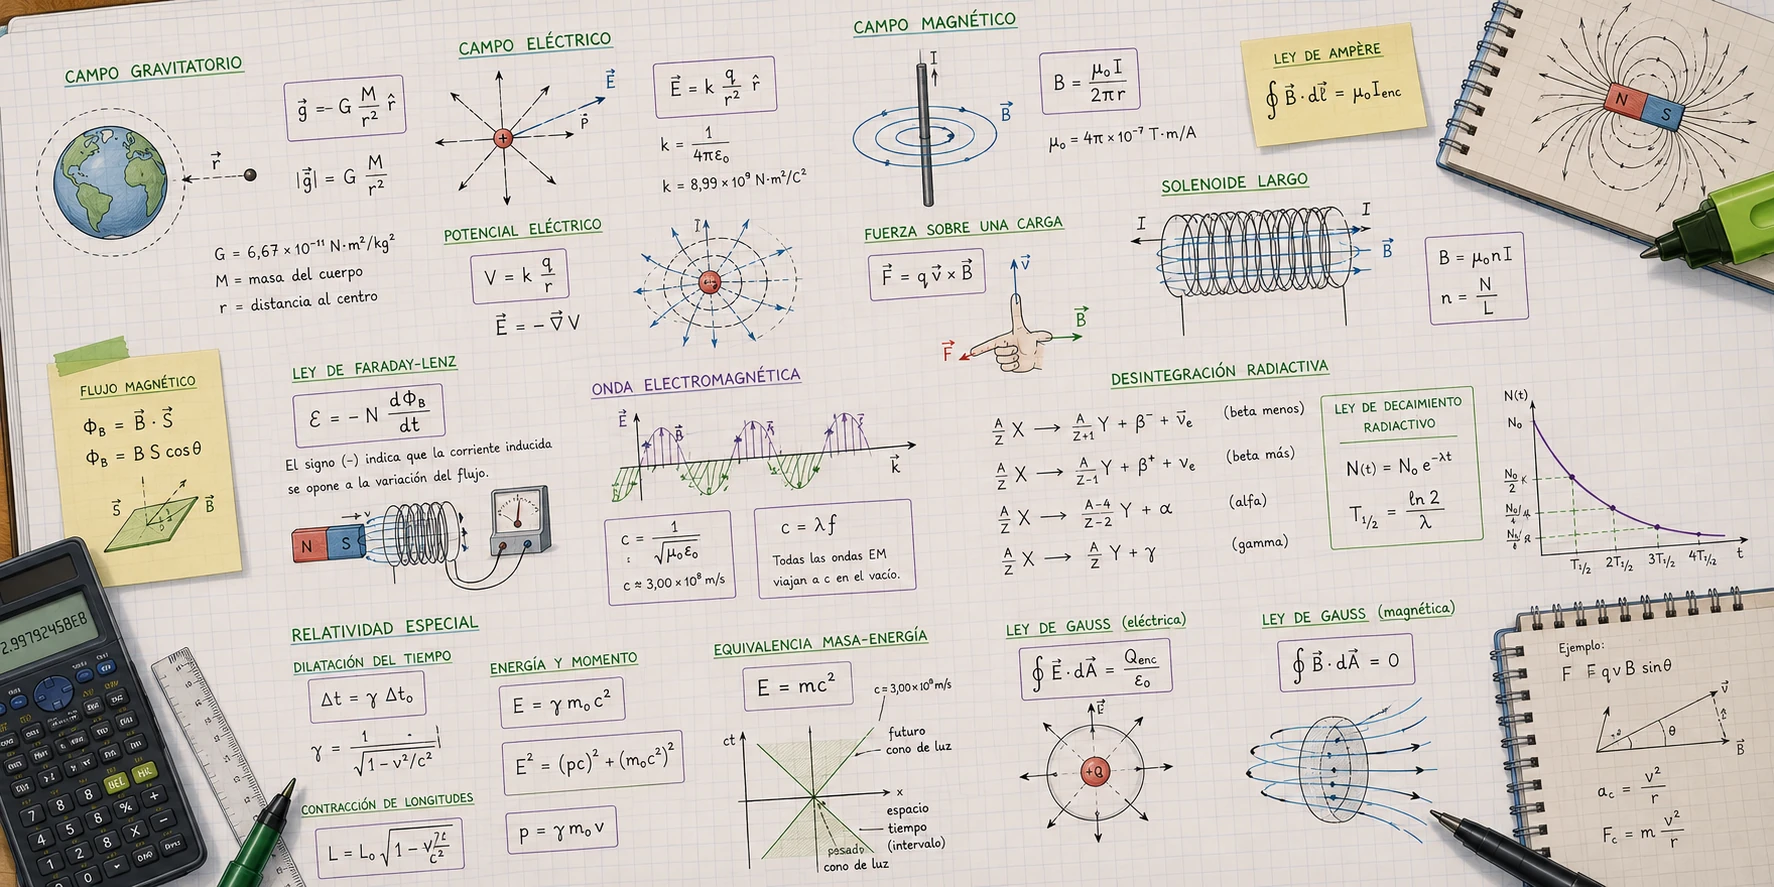 CAMPO GRAVITATORIO
g⃗ = - G M/r² r̂
|g⃗| = G M/r²
r⃗
G = 6,67 × 10⁻¹¹ N·m²/kg²
M = masa del cuerpo
r = distancia al centro
CAMPO ELÉCTRICO
E⃗
p⃗
+
E⃗ = k q/r² r̂
k = 1/4πε₀
k = 8,99 × 10⁹ N·m²/C²
CAMPO MAGNÉTICO
I
B⃗
B = μ₀I/2πr
μ₀ = 4π × 10⁻⁷ T·m/A
LEY DE AMPÈRE
∮ B⃗·dℓ⃗ = μ₀Ienc
N S
POTENCIAL ELÉCTRICO
V = k q/r
E⃗ = - ∇⃗V
FUERZA SOBRE UNA CARGA
F⃗ = q v⃗ × B⃗
v⃗
B⃗
F⃗
SOLENOIDE LARGO
I
I
B⃗
B = μ₀nI
n = N/L
FLUJO MAGNÉTICO
Φ_B = B⃗ · S⃗
Φ_B = B S cosθ
S⃗
B⃗
LEY DE FARADAY-LENZ
ℰ = - N dΦ_B/dt
El signo (-) indica que la corriente inducida
se opone a la variación del flujo.
v
N S
ONDA ELECTROMAGNÉTICA
E⃗
B⃗
k⃗
c = 1/√μ₀ε₀
c ≈ 3,00 × 10⁸ m/s
c = λf
Todas las ondas EM
viajan a c en el vacío.
DESINTEGRACIÓN RADIACTIVA
A/Z X → A/Z+1 Y + β⁻ + ν̄e (beta menos)
A/Z X → A/Z-1 Y + β⁺ + νe (beta más)
A/Z X → A-4/Z-2 Y + α (alfa)
A/Z X → A/Z Y + γ (gamma)
LEY DE DECAIMIENTO
RADIACTIVO
N(t) = N₀ e^-λt
T₁/₂ = ln 2/λ
N(t)
N₀
N₀/2
T₁/₂ 2T₁/₂ 3T₁/₂ 4T₁/₂
t
2.99792458E8
RELATIVIDAD ESPECIAL
DILATACIÓN DEL TIEMPO
Δt = γ Δt₀
γ = 1/√1 - v²/c²
CONTRACCIÓN DE LONGITUDES
L = L₀ √1 -
ENERGÍA Y MOMENTO
E = γ m₀ c²
E² = (pc)² + (m₀c²)²
p = γ m₀ v
EQUIVALENCIA MASA-ENERGÍA
E = mc²
c = 3,00×10⁸ m/s
ct
futuro
cono de luz
x
espacio
tiempo
(intervalo)
pasado
cono de luz
LEY DE GAUSS (eléctrica)
∮ E⃗·dA⃗ = Qenc/ε₀
E⃗
+Q
LEY DE GAUSS (magnética)
∮ B⃗·dA⃗ = 0
Ejemplo:
F = q v B sinθ
v⃗
θ
B⃗
a_c = v²/r
F_c = m v²/r
7 8 8
4 5 8 % +
1 2 8 × −
0